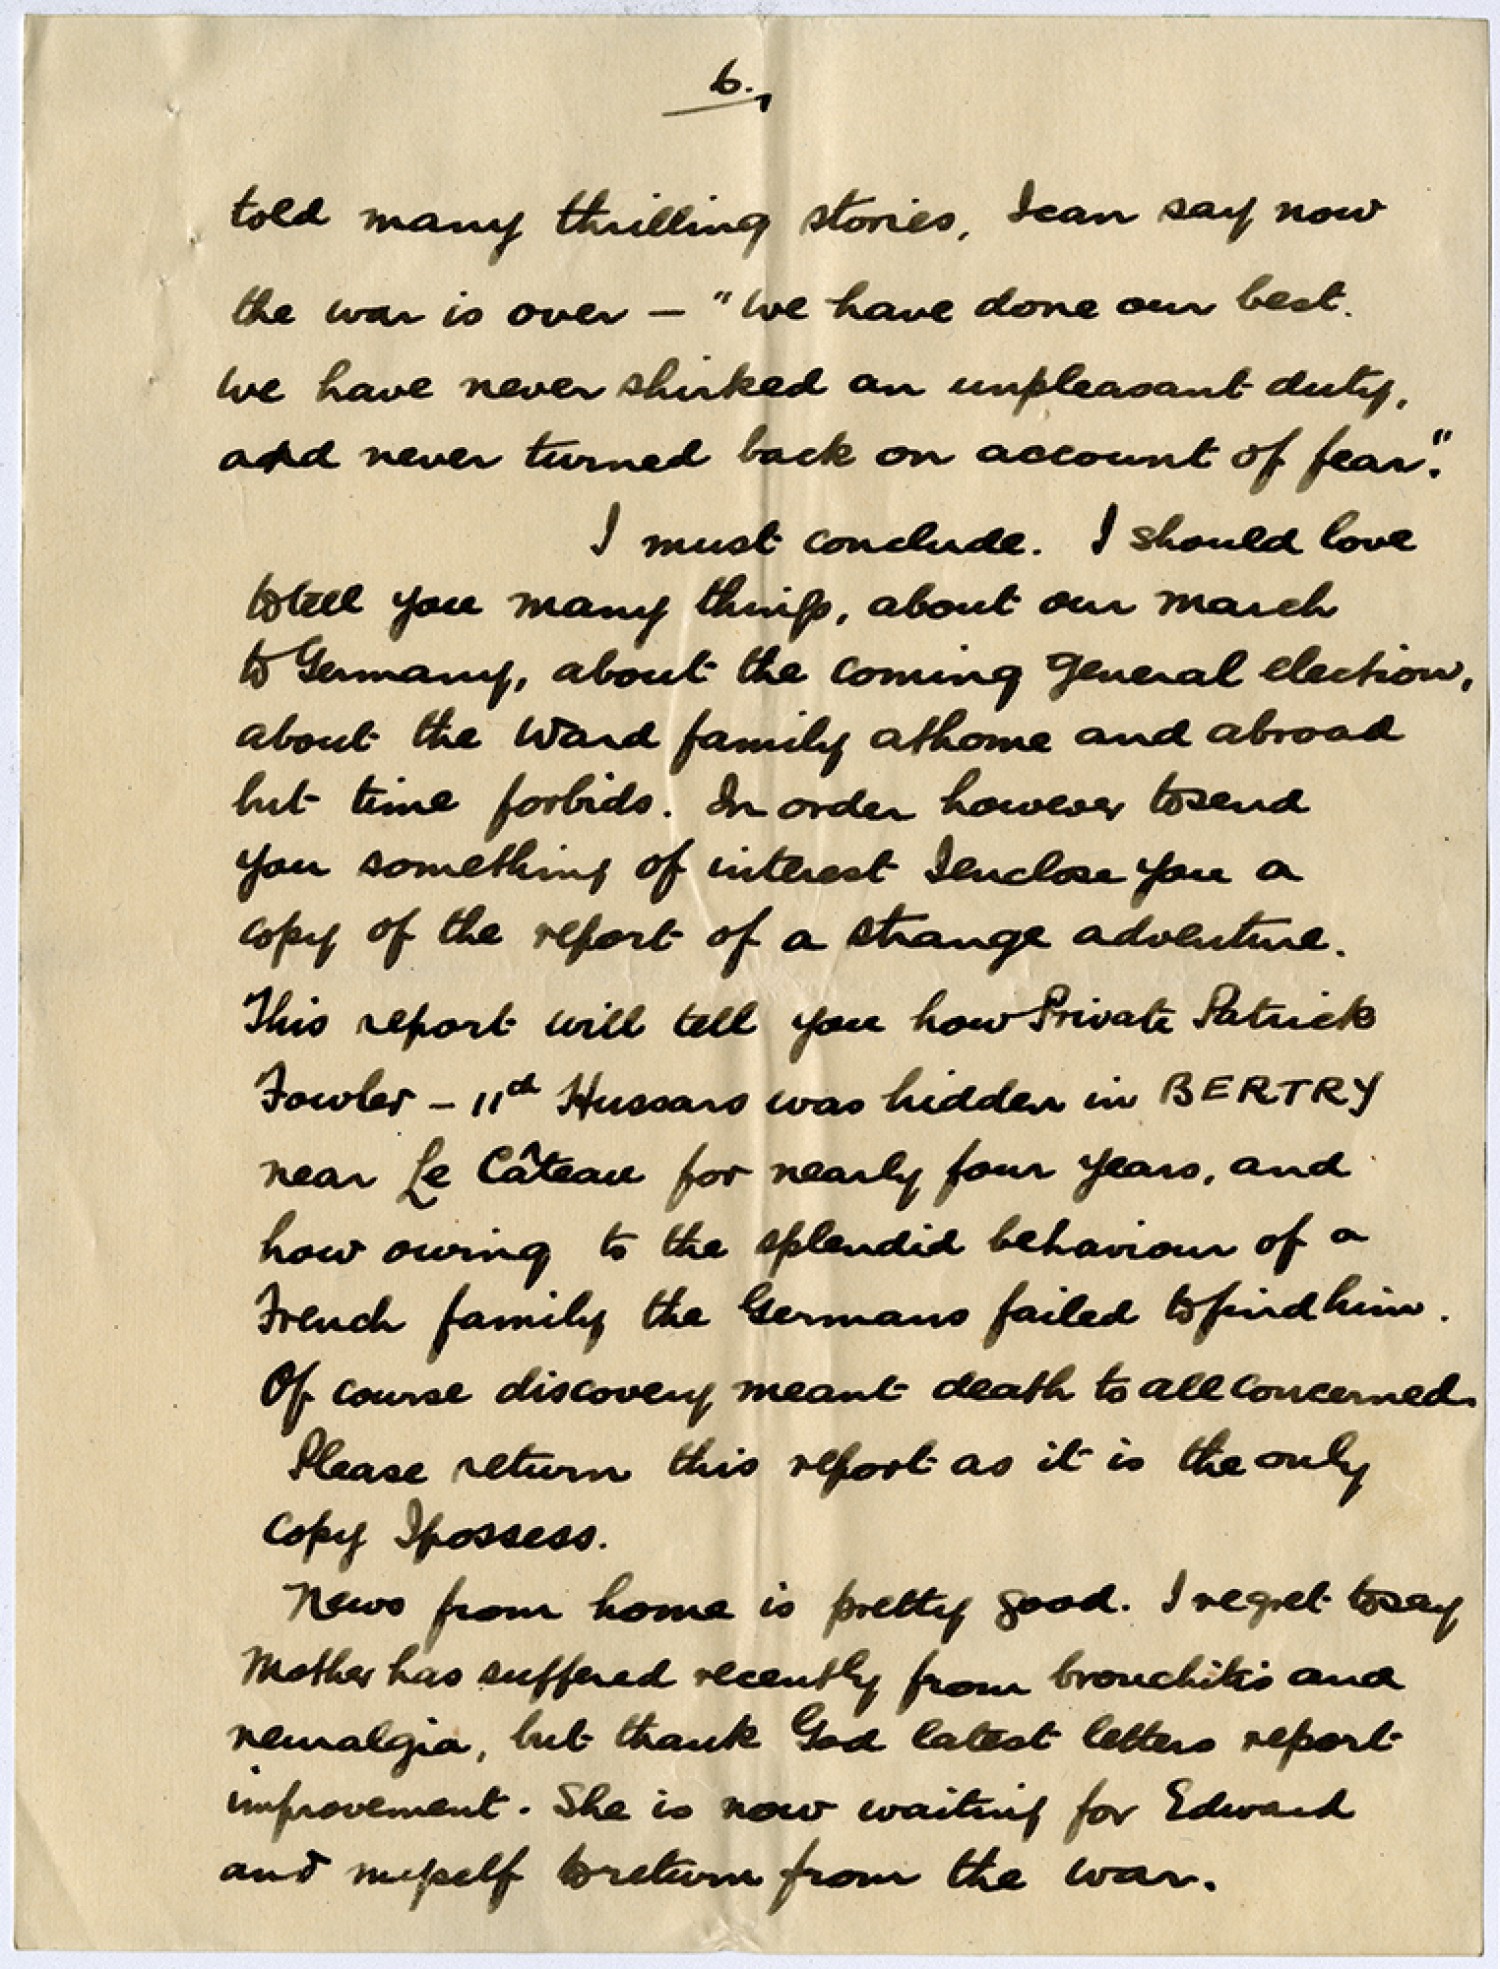 6.,
told many thrilling stories, I can say now
the war is over — "We have done our best.
We have never shirked an unpleasant duty,
and never turned back on account of fear."
I must conclude. I should love
to tell you many things, about our march
to Germany, about the coming general election,
about the Ward family at home and abroad
but time forbids. In order however to send
you something of interest I enclose you a
copy of the report of a strange adventure.
This report will tell you how Private Patrick
Fowler – 11th Hussars was hidden in BERTRY
near Le Câteau for nearly four years, and
how owing to the splendid behaviour of a
French family the Germans failed to find him.
Of course discovery meant death to all concerned.
Please return this report as it is the only
copy I possess.
News from home is pretty good. I regret to say
Mother has suffered recently from bronchitis and
neuralgia, but thank God latest letters report
improvement. She is now waiting for Edward
and myself to return from the war.